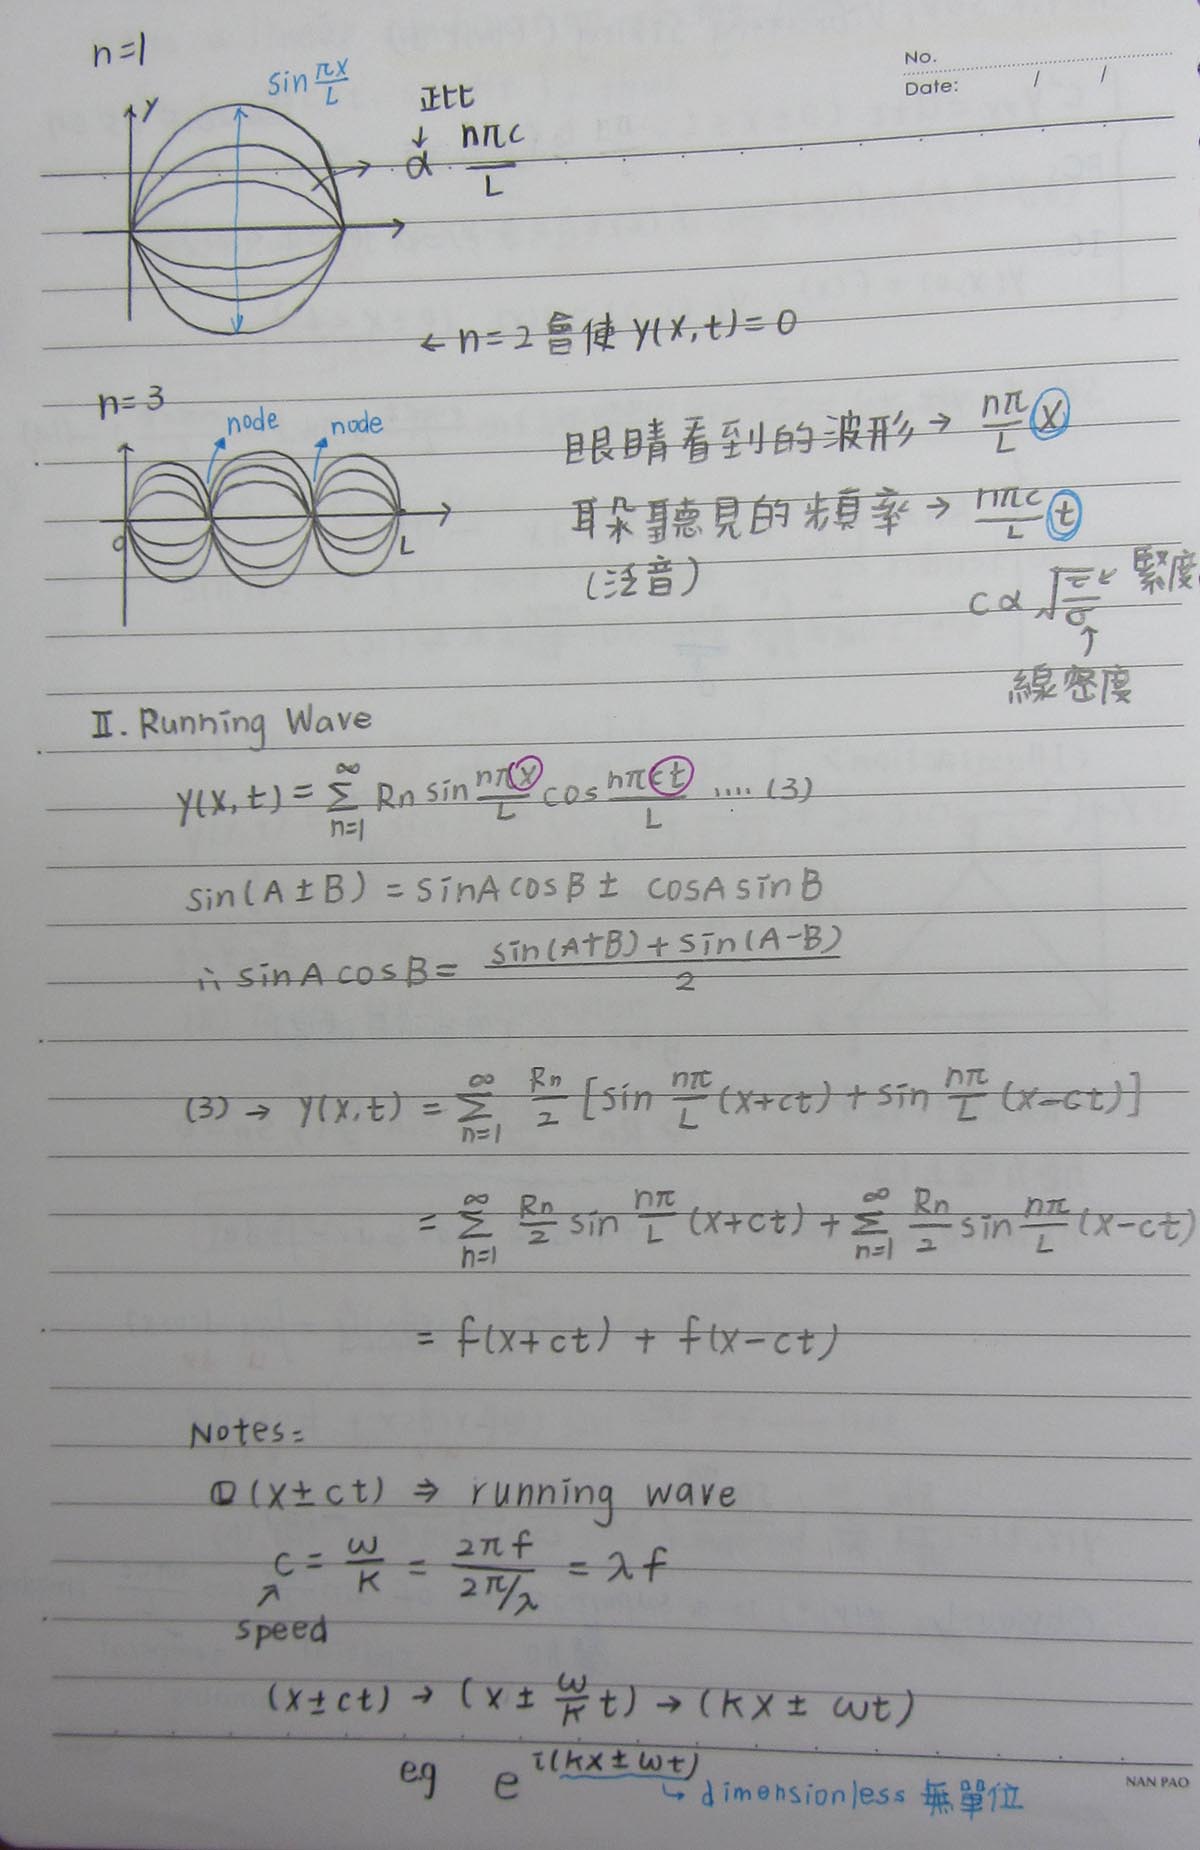 No.
Date: / /
n=1
y
sin πx/L
正比
↓
α nπc/L
← n=2 會使 y(x,t)=0
n=3
node node
0 L
眼睛看到的波形 → nπ/L x
耳朵聽見的頻率 → nπc/L t
(泛音)
c α √(τ/σ) ← 緊度
↑
線密度
II. Running Wave
y(x,t) = ∑_{n=1}^{∞} Rn sin nπx/L cos nπct/L .... (3)
sin(A±B) = sinA cosB ± cosA sinB
∴ sinA cosB = (sin(A+B)+sin(A-B))/2
(3) → y(x,t) = ∑_{n=1}^{∞} Rn/2 [sin nπ/L (x+ct) + sin nπ/L (x-ct)]
= ∑_{n=1}^{∞} Rn/2 sin nπ/L (x+ct) + ∑_{n=1}^{∞} Rn/2 sin nπ/L (x-ct)
= f(x+ct) + f(x-ct)
Notes:
① (x±ct) ⇒ running wave
c = ω/k = 2πf/(2π/λ) = λf
↗
speed
(x±ct) → (x ± ω/k t) → (kx ± ωt)
eg e^{i(kx±ωt)}
↳ dimensionless 無單位
NAN PAO